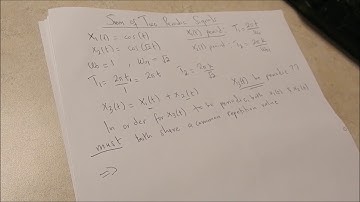 Sum of Two Periodic Signals
x₁(t) = cos(t)
x₁(t) period T₁ = 2πk/ω₀
x₂(t) = cos(√2t)
x₂(t) period T₂ = 2πk/
ω₀ = 1 , ω₁ = √2
T₁ = 2πk = 2πk T₂ = 2πk/√2
x₃(t) = x₁(t) + x₂(t) x₃(t) be periodic ??
In order for x₃(t) to be periodic, both x₁(t) & x₂(t)
must both share a common repetition value
⇒